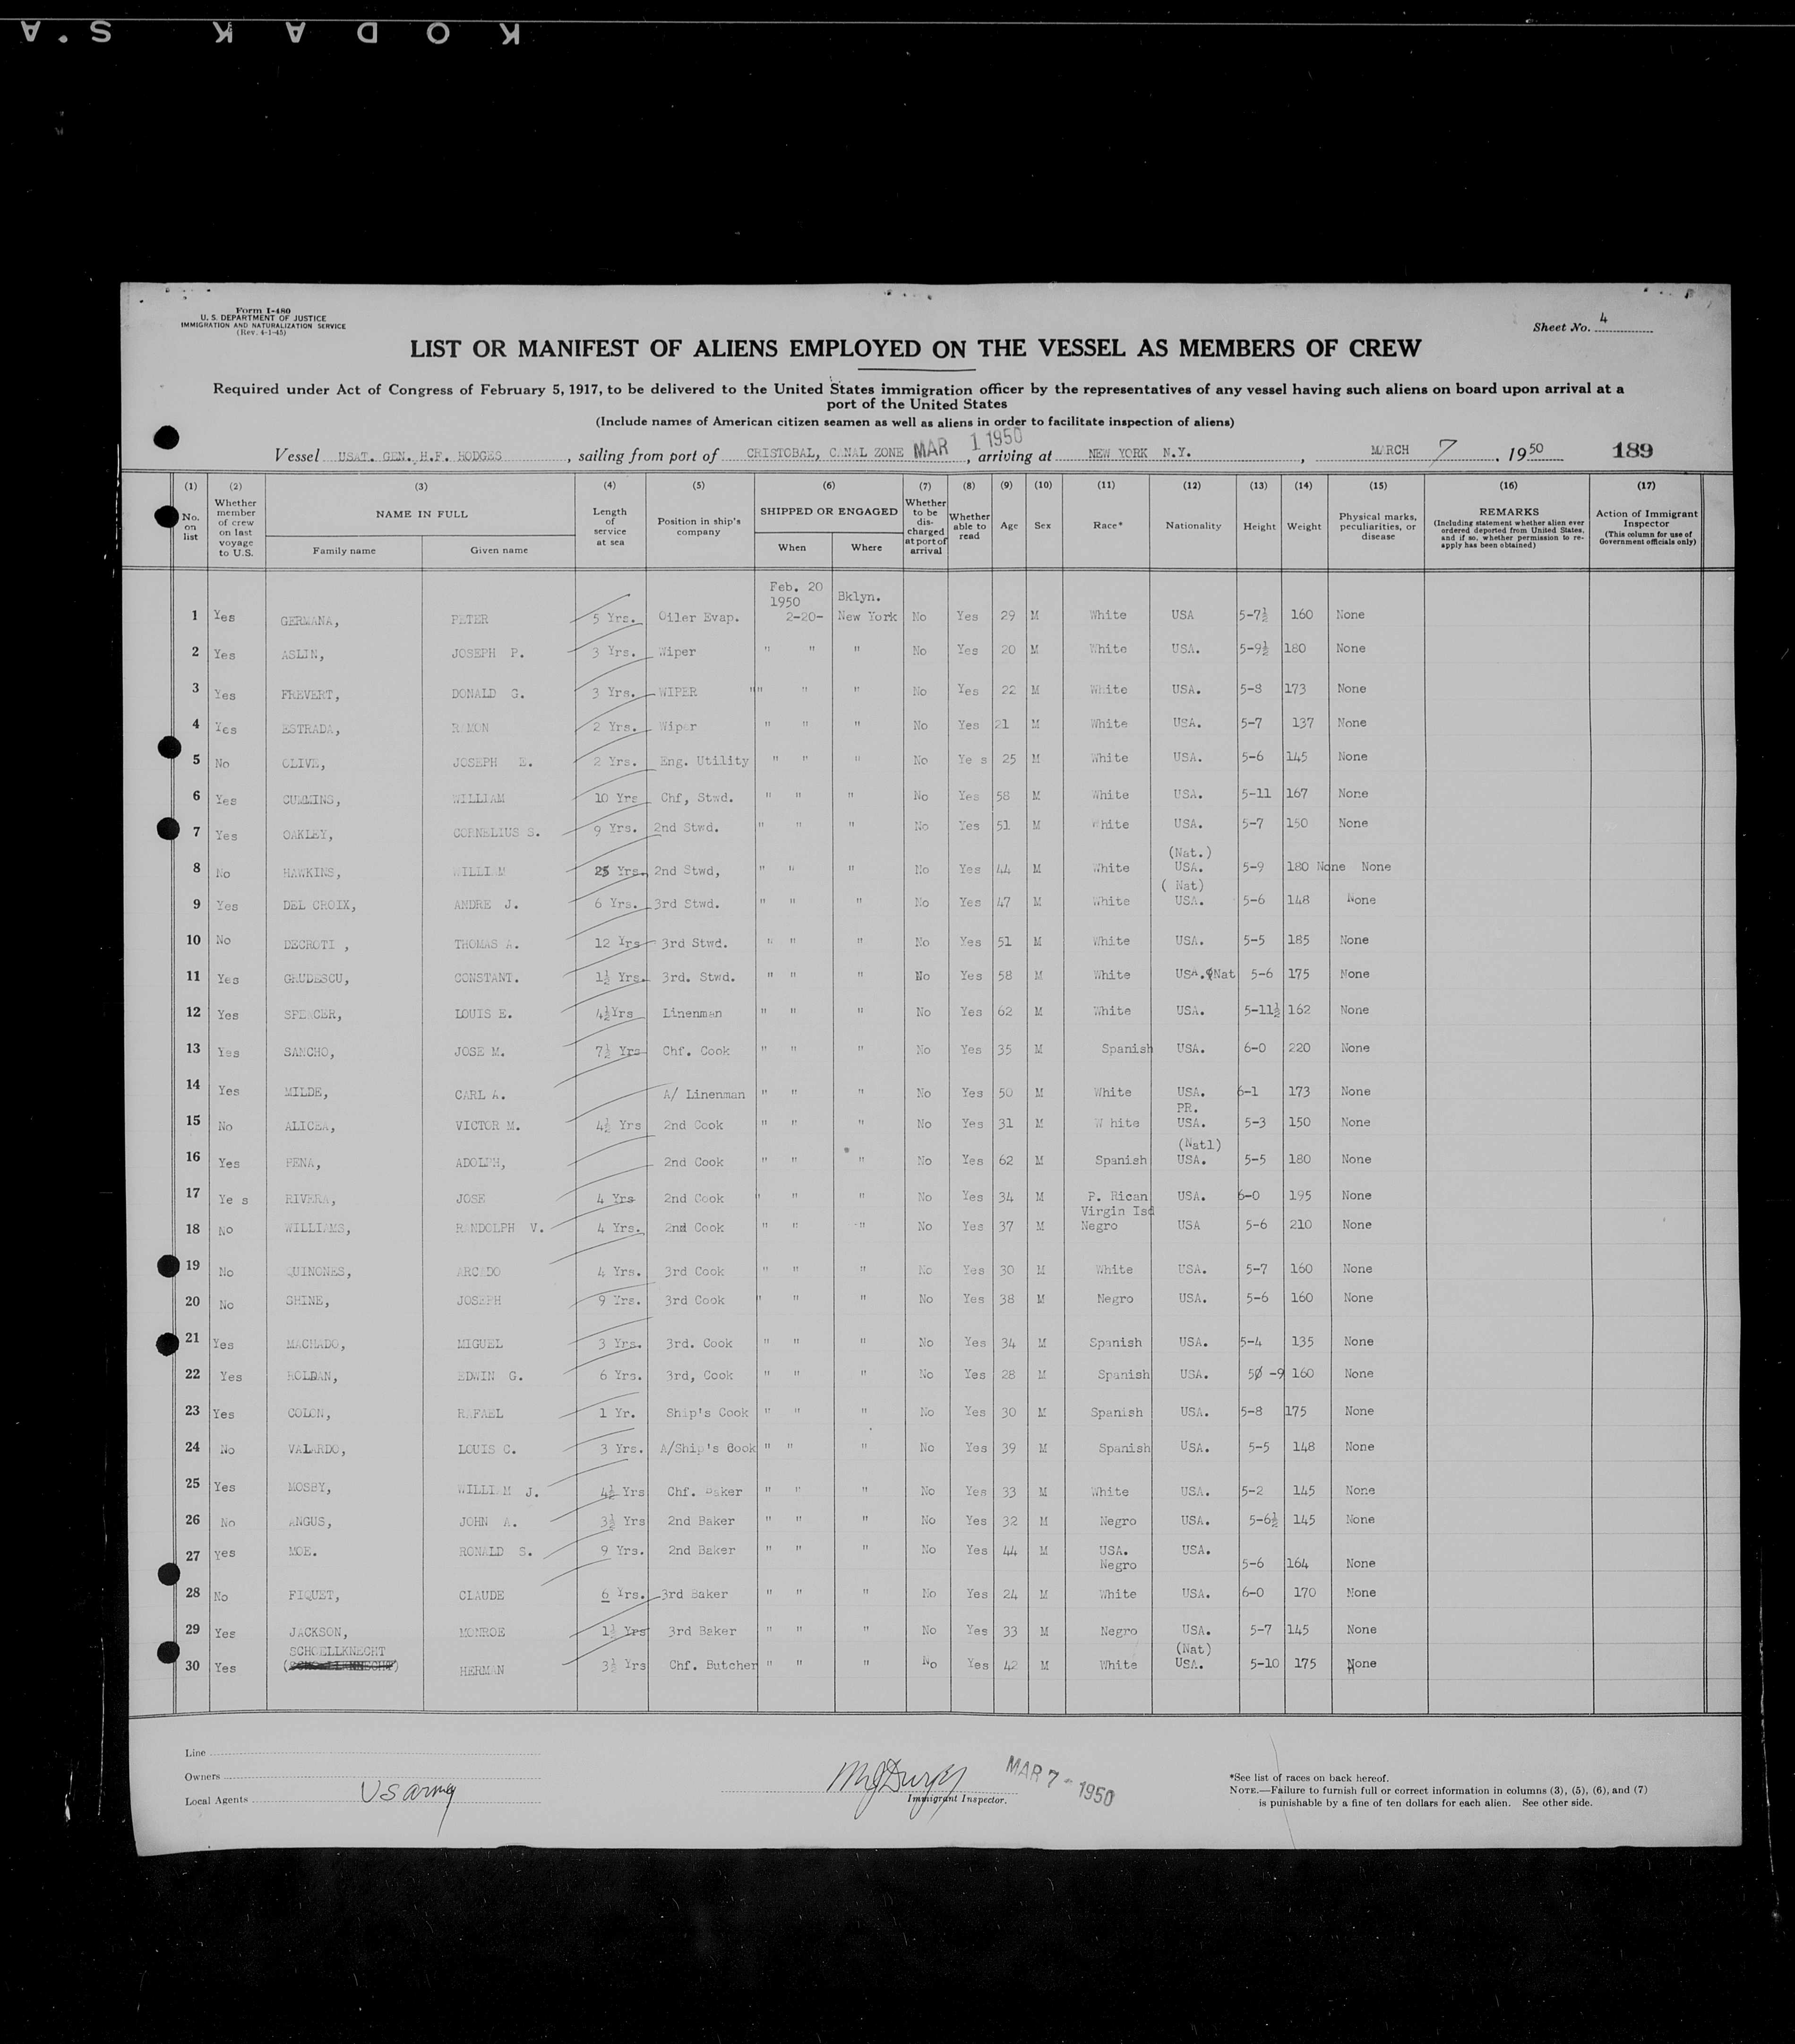 KODAK S.A
Form I-480
U. S. DEPARTMENT OF JUSTICE
IMMIGRATION AND NATURALIZATION SERVICE
(Rev. 4-1-45)
Sheet No. 4
LIST OR MANIFEST OF ALIENS EMPLOYED ON THE VESSEL AS MEMBERS OF CREW
Required under Act of Congress of February 5, 1917, to be delivered to the United States immigration officer by the representatives of any vessel having such aliens on board upon arrival at a
port of the United States
(Include names of American citizen seamen as well as aliens in order to facilitate inspection of aliens)
Vessel USAT. GEN. H.F. HODGES, sailing from port of CRISTOBAL, CANAL ZONE MAR 1 1950, arriving at NEW YORK N.Y., MARCH 7, 1950 189
(1) (2) (3) (4) (5) (6) (7) (8) (9) (10) (11) (12) (13) (14) (15) (16) (17)
No. on list
Whether member of crew on last voyage to U.S.
NAME IN FULL
Family name Given name
Length of service at sea
Position in ship's company
SHIPPED OR ENGAGED
When Where
Whether to be discharged at port of arrival
Whether able to read
Age
Sex
Race*
Nationality
Height
Weight
Physical marks, peculiarities, or disease
REMARKS
(Including statement whether alien ever ordered deported from United States, and if so, whether permission to reapply has been obtained)
Action of Immigrant Inspector
(This column for use of Government officials only)
Feb. 20
1950 Bklyn.
1 Yes GERMANA, PETER 5 Yrs. Oiler Evap. 2-20- New York No Yes 29 M White USA 5-7½ 160 None
2 Yes ASLIN, JOSEPH P. 3 Yrs. Wiper " " " No Yes 20 M White USA. 5-9½ 180 None
3 Yes FREVERT, DONALD G. 3 Yrs. WIPER "" " " No Yes 22 M White USA. 5-8 173 None
4 Yes ESTRADA, RAMON 2 Yrs. Wiper " " " No Yes 21 M White USA. 5-7 137 None
5 No OLIVE, JOSEPH E. 2 Yrs. Eng. Utility " " " No Ye s 25 M White USA. 5-6 145 None
6 Yes CUMMINS, WILLIAM 10 Yrs Chf, Stwd. " " " No Yes 58 M White USA. 5-11 167 None
7 Yes OAKLEY, CORNELIUS S. 9 Yrs. 2nd Stwd. " " " No Yes 51 M White USA. 5-7 150 None
(Nat.)
8 No HAWKINS, WILLIAM 25 Yrs. 2nd Stwd, " " " No Yes 44 M White USA. 5-9 180 None None
( Nat)
9 Yes DEL CROIX, ANDRE J. 6 Yrs. 3rd Stwd. " " " No Yes 47 M White USA. 5-6 148 None
10 No DECROTI , THOMAS A. 12 Yrs 3rd Stwd. " " " No Yes 51 M White USA. 5-5 185 None
11 Yes GRUDESCU, CONSTANT. 1½ Yrs. 3rd. Stwd. " " " No Yes 58 M White USA.(Nat 5-6 175 None
12 Yes SPENCER, LOUIS E. 4½Yrs Linenman " " " No Yes 62 M White USA. 5-11½ 162 None
13 Yes SANCHO, JOSE M. 7½ Yrs Chf. Cook " " " No Yes 35 M Spanish USA. 6-0 220 None
14 Yes MILDE, CARL A. A/ Linenman " " " No Yes 50 M White USA. 6-1 173 None
PR.
15 No ALICEA, VICTOR M. 4½ Yrs 2nd Cook " " " No Yes 31 M W hite USA. 5-3 150 None
(Natl)
16 Yes PENA, ADOLPH, 2nd Cook " " " No Yes 62 M Spanish USA. 5-5 180 None
17 Ye s RIVERA, JOSE 4 Yrs 2nd Cook " " " No Yes 34 M P. Rican USA. 6-0 195 None
Virgin Isd
18 No WILLIAMS, RANDOLPH V. 4 Yrs. 2nd Cook " " " No Yes 37 M Negro USA 5-6 210 None
19 No QUINONES, ARCADO 4 Yrs. 3rd Cook " " " No Yes 30 M White USA. 5-7 160 None
20 No SHINE, JOSEPH 9 Yrs. 3rd Cook " " " No Yes 38 M Negro USA. 5-6 160 None
21 Yes MACHADO, MIGUEL 3 Yrs. 3rd. Cook " " " No Yes 34 M Spanish USA. 5-4 135 None
22 Yes ROLDAN, EDWIN G. 6 Yrs. 3rd, Cook " " " No Yes 28 M Spanish USA. 50 -9 160 None
23 Yes COLON, RAFAEL 1 Yr. Ship's Cook " " " No Yes 30 M Spanish USA. 5-8 175 None
24 No VALARDO, LOUIS C. 3 Yrs. A/Ship's Cook " " " No Yes 39 M Spanish USA. 5-5 148 None
25 Yes MOSBY, WILLIAM J. 4½ Yrs Chf. Baker " " " No Yes 33 M White USA. 5-2 145 None
26 No ANGUS, JOHN A. 3½ Yrs 2nd Baker " " " No Yes 32 M Negro USA. 5-6½ 145 None
27 Yes MOE. RONALD S. 9 Yrs. 2nd Baker " " " No Yes 44 M USA. USA.
Negro 5-6 164 None
28 No FIQUET, CLAUDE 6 Yrs. 3rd Baker " " " No Yes 24 M White USA. 6-0 170 None
29 Yes JACKSON, MONROE 1½ Yrs 3rd Baker " " " No Yes 33 M Negro USA. 5-7 145 None
SCHOELLKNECHT (Nat)
30 Yes HERMAN 3½ Yrs Chf. Butcher " " " No Yes 42 M White USA. 5-10 175 None
Line
Owners
Local Agents US Army
Immigrant Inspector.
MAR 7 - 1950
*See list of races on back hereof.
NOTE.—Failure to furnish full or correct information in columns (3), (5), (6), and (7)
is punishable by a fine of ten dollars for each alien. See other side.